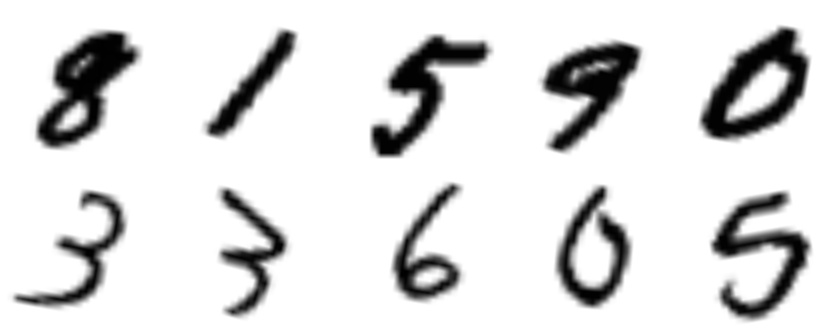 8 1 5 9 0
3 3 6 0 5